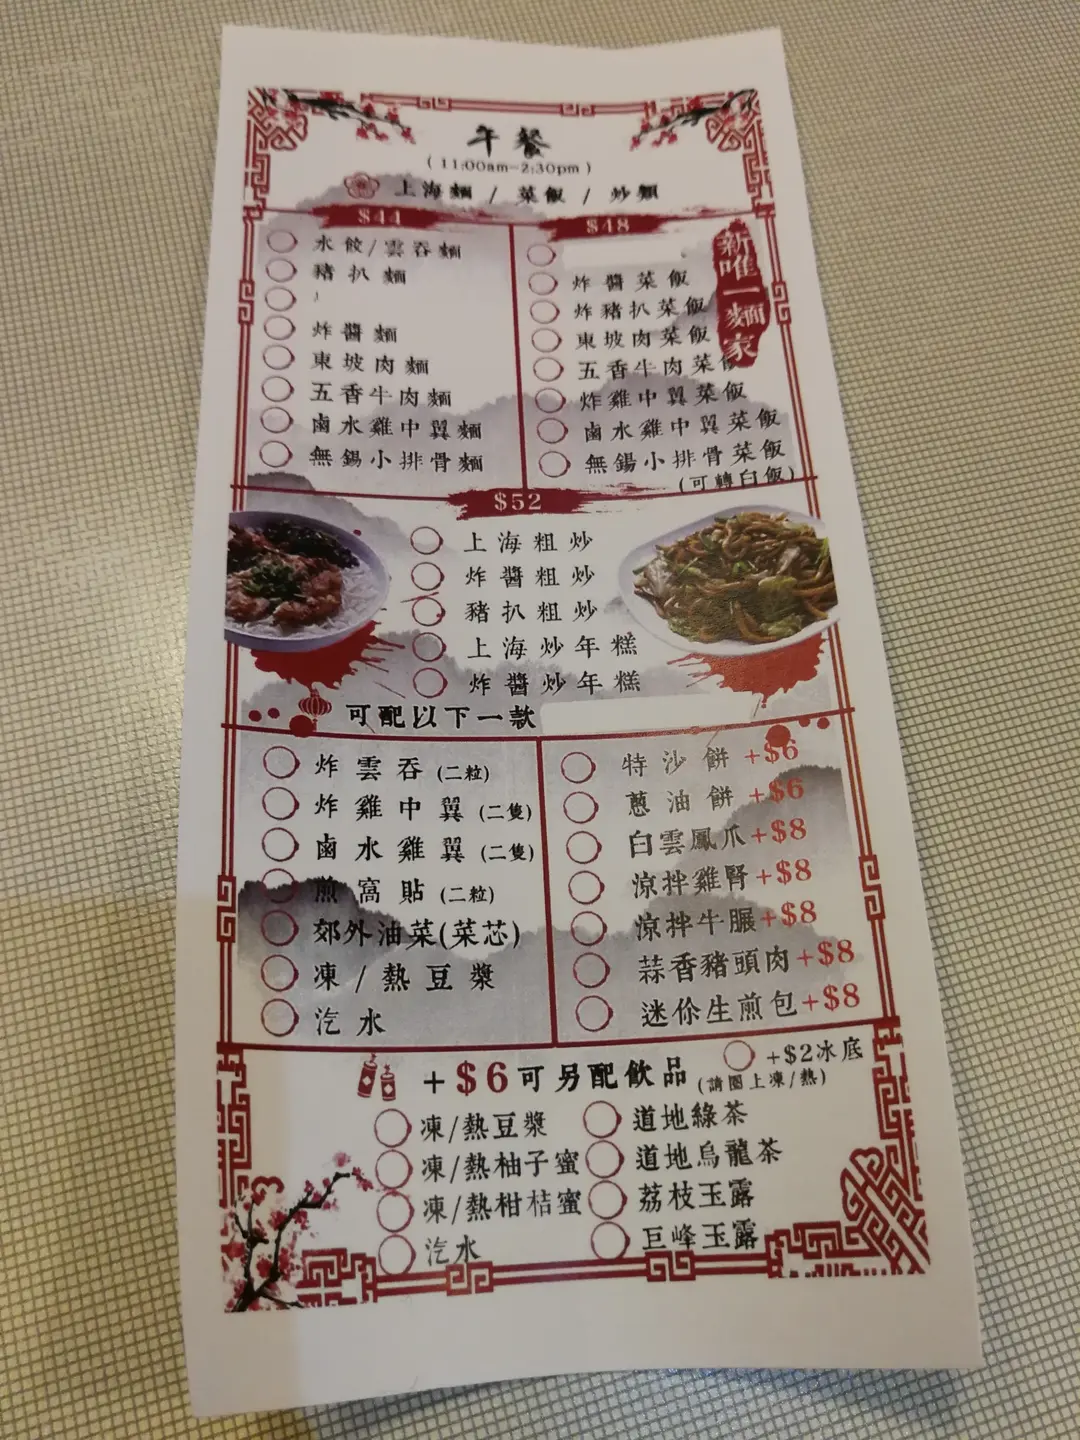 午餐
(11:00am-2:30pm)
上海麵 / 菜飯 / 炒類
$44
水餃/雲吞麵
豬扒麵
炸醬麵
東坡肉麵
五香牛肉麵
鹵水雞中翼麵
無錫小排骨麵
$48
炸醬菜飯
炸豬扒菜飯
東坡肉菜飯
五香牛肉菜飯
炸雞中翼菜飯
鹵水雞中翼菜飯
無錫小排骨菜飯
(可轉白飯)
新唯一麵家
$52
上海粗炒
炸醬粗炒
豬扒粗炒
上海炒年糕
炸醬炒年糕
可配以下一款
炸雲吞(二粒)
炸雞中翼(二隻)
鹵水雞翼(二隻)
煎窩貼(二粒)
郊外油菜(菜芯)
凍/熱豆漿
汽水
特沙餅+$6
蔥油餅+$6
白雲鳳爪+$8
涼拌雞腎+$8
涼拌牛𦟌+$8
蒜香豬頭肉+$8
迷你生煎包+$8
+$6可另配飲品
+$2冰底
(請圈上凍/熱)
凍/熱豆漿
凍/熱柚子蜜
凍/熱柑桔蜜
汽水
道地綠茶
道地烏龍茶
荔枝玉露
巨峰玉露